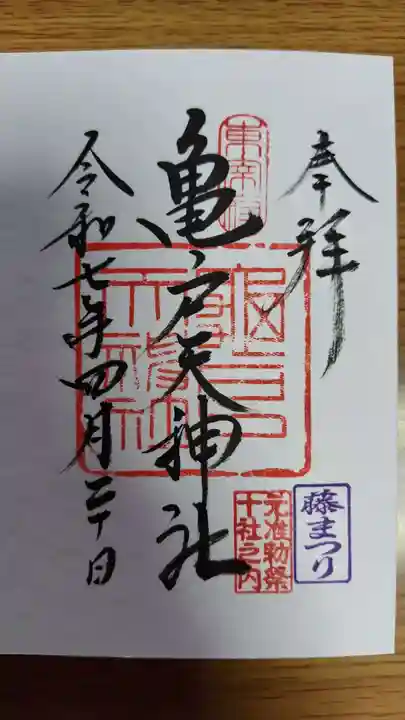 奉拝
藤まつり
元准勅祭
十社之内
東宰府
亀戸天神社
龜戸
天神社
令和七年四月二十日